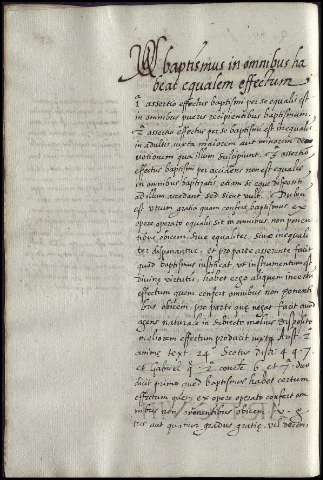 baptismus in omnibus ha
beat equalem effectum
1ª assertio effectus baptismi per se equalis est
in omnibus pueris recipientibus baptismum.
2ª assertio effectus per se baptismi est inequalis
in adultis iuxta maiorem aut minorem de
votionem qua illum suscipiunt. 3ª assertio
effectus baptismi per accidens non est equalis
in omnibus baptizatis etiam si eque dispositi
ad illum accedant sed sicut vult. Dubium
est utrum gratia quam confert baptismus ex
opere operato equalis sit in omnibus non ponen
tibus obicem sive equaliter sive inequali
ter disponantur. et pro parte
quod baptismus iustificat ut instrumentum est
divine virtutis, habet ergo aliquem certum
effectum quem confert omnibus non ponenti
bus obicem, pro parte que negat facit quod
agens naturale in subiecto melius disposito
meliorem effectum producit iuxta
anime text 24 Scotus dist. 4 q. 7.
et Gabriel q. 2 6 et 7.
dicit primo quod baptismus habet certum
effectum quem ex opere operato confert om
nibus non ponentibus obicem v. g.
tres aut quatuor gradus gratie, vel